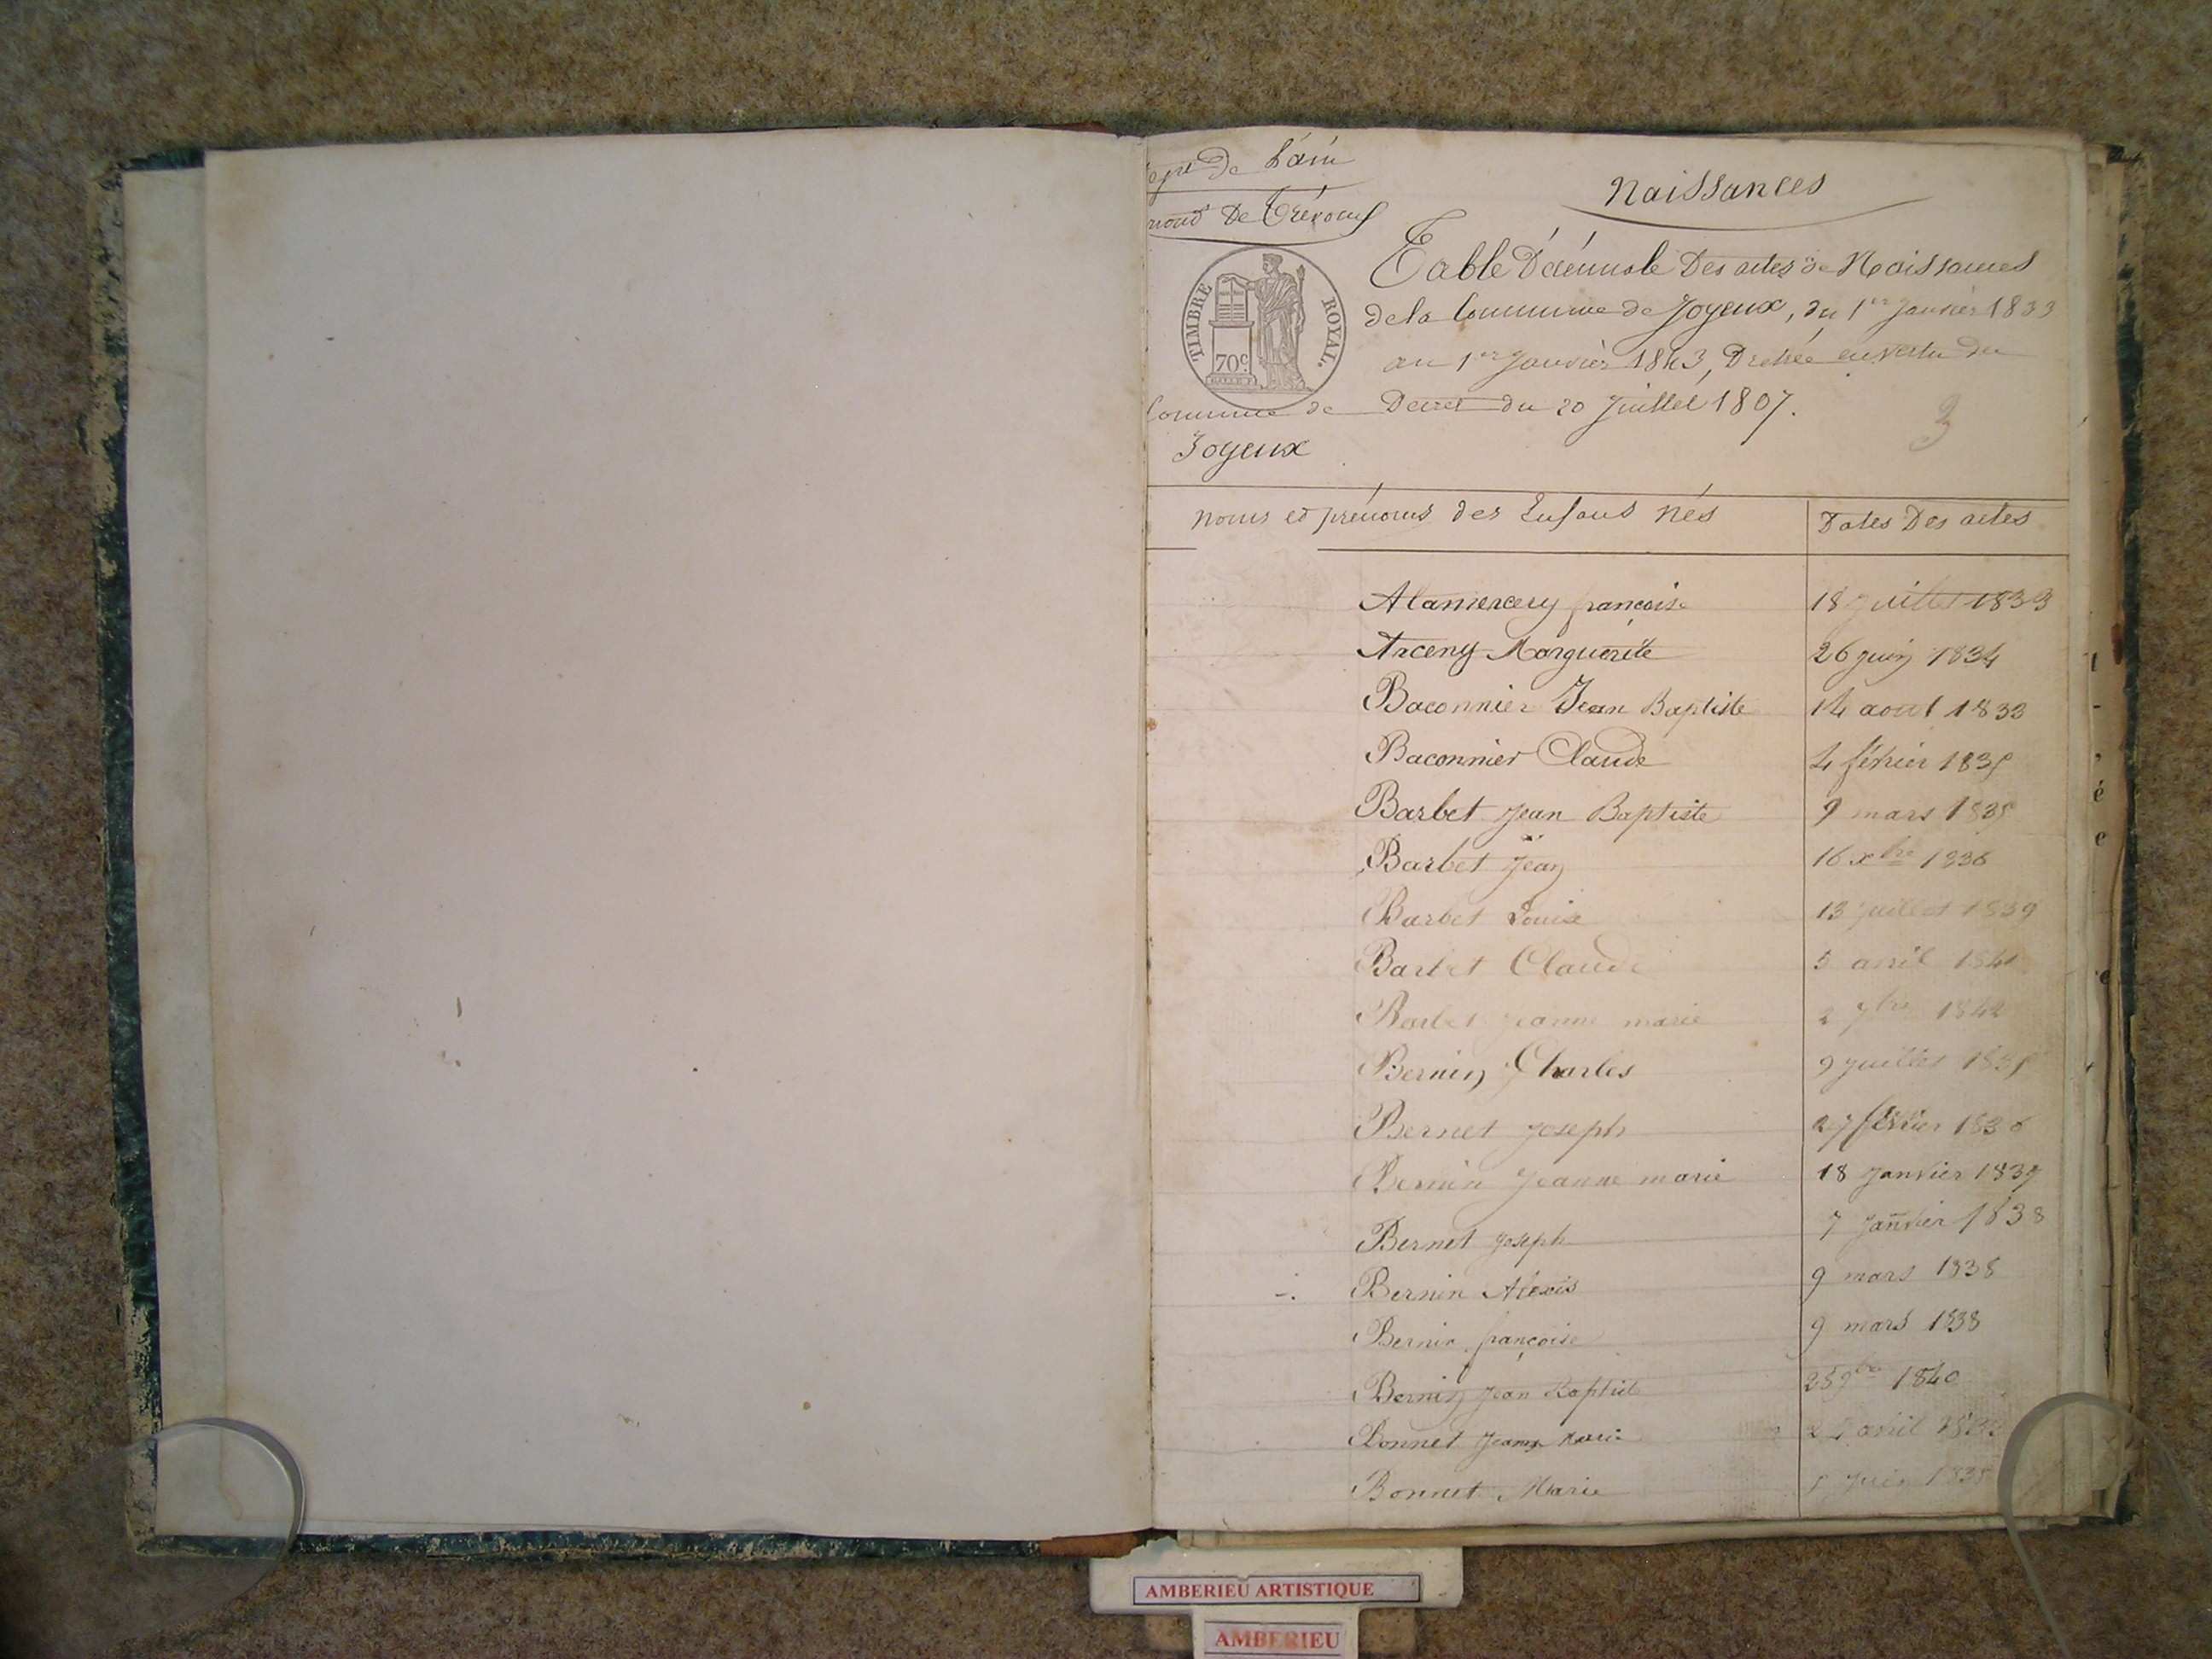 Dept de L'ain
De Trévoux
Naissances
TIMBRE ROYAL
70 c.
Table Décennale Des actes de Naissances
de la Commune de Joyeux, du 1er Janvier 1833
au 1er Janvier 1843, Dressée en vertu du
Commune de
Joyeux
Decret du 20 Juillet 1807.
3
Noms et prénoms des Enfans nés
Dates Des actes
Alamercery françoise 18 Juillet 1833
Arceny Marguerite 26 juin 1834
Baconnier Jean Baptiste 14 aout 1833
Baconnier Claude 4 février 1835
Barbet Jean Baptiste 9 mars 1835
Barbet Jean 16 xbre 1836
Barbet Louise 13 juillet 1839
Barbet Claude 5 avril 1841
Barbet jeanne marie 2 7bre 1842
Bernin Charles 9 juillet 1835
Bernet joseph 27 février 1836
Bernin Jeanne marie 18 janvier 1837
Bernet joseph 7 janvier 1838
Bernin Alexis 9 mars 1838
Bernin françoise 9 mars 1838
Bernin Jean Baptist 25 9bre 1840
Bonnet Jeanne Marie avril
Bonnet Marie juin 1835
AMBERIEU ARTISTIQUE
AMBERIEU